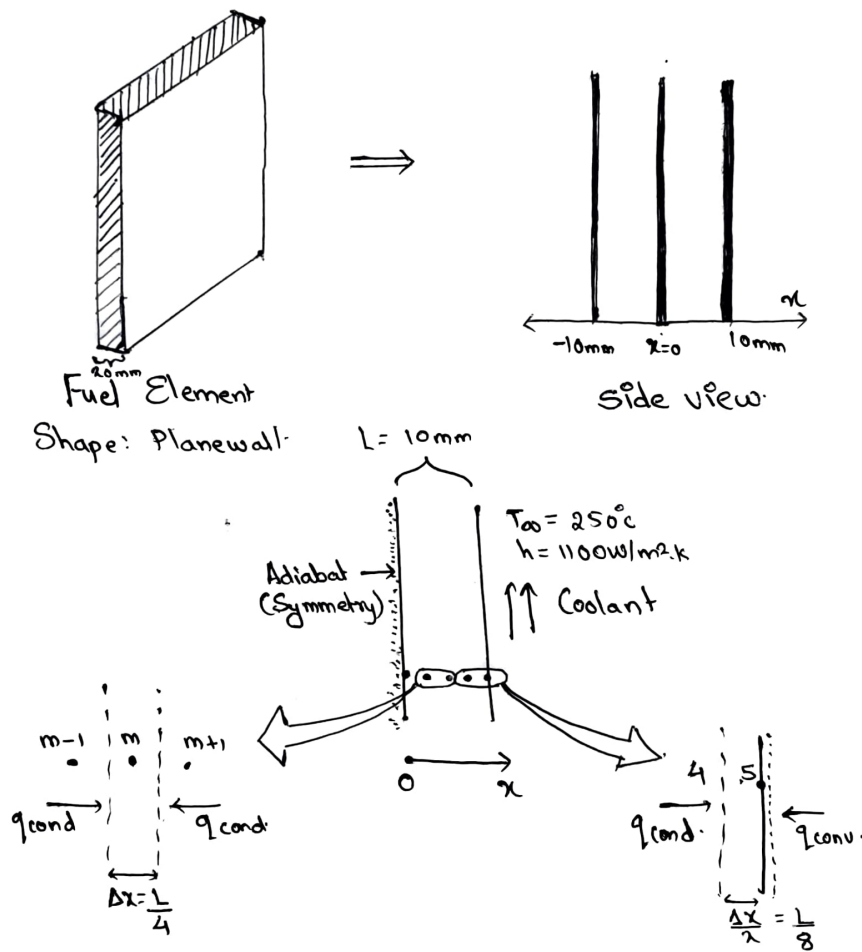 20mm
Fuel Element
Shape: Planewall.
x
-10mm x=0 10mm
Side view.
L = 10mm
T∞ = 250°c
h = 1100W/m².k
Adiabat
(Symmetry)
Coolant
m-1 m m+1
qcond qcond.
Δx = L/4
0 x
4 5
qcond. qconv.
Δx/2 = L/8